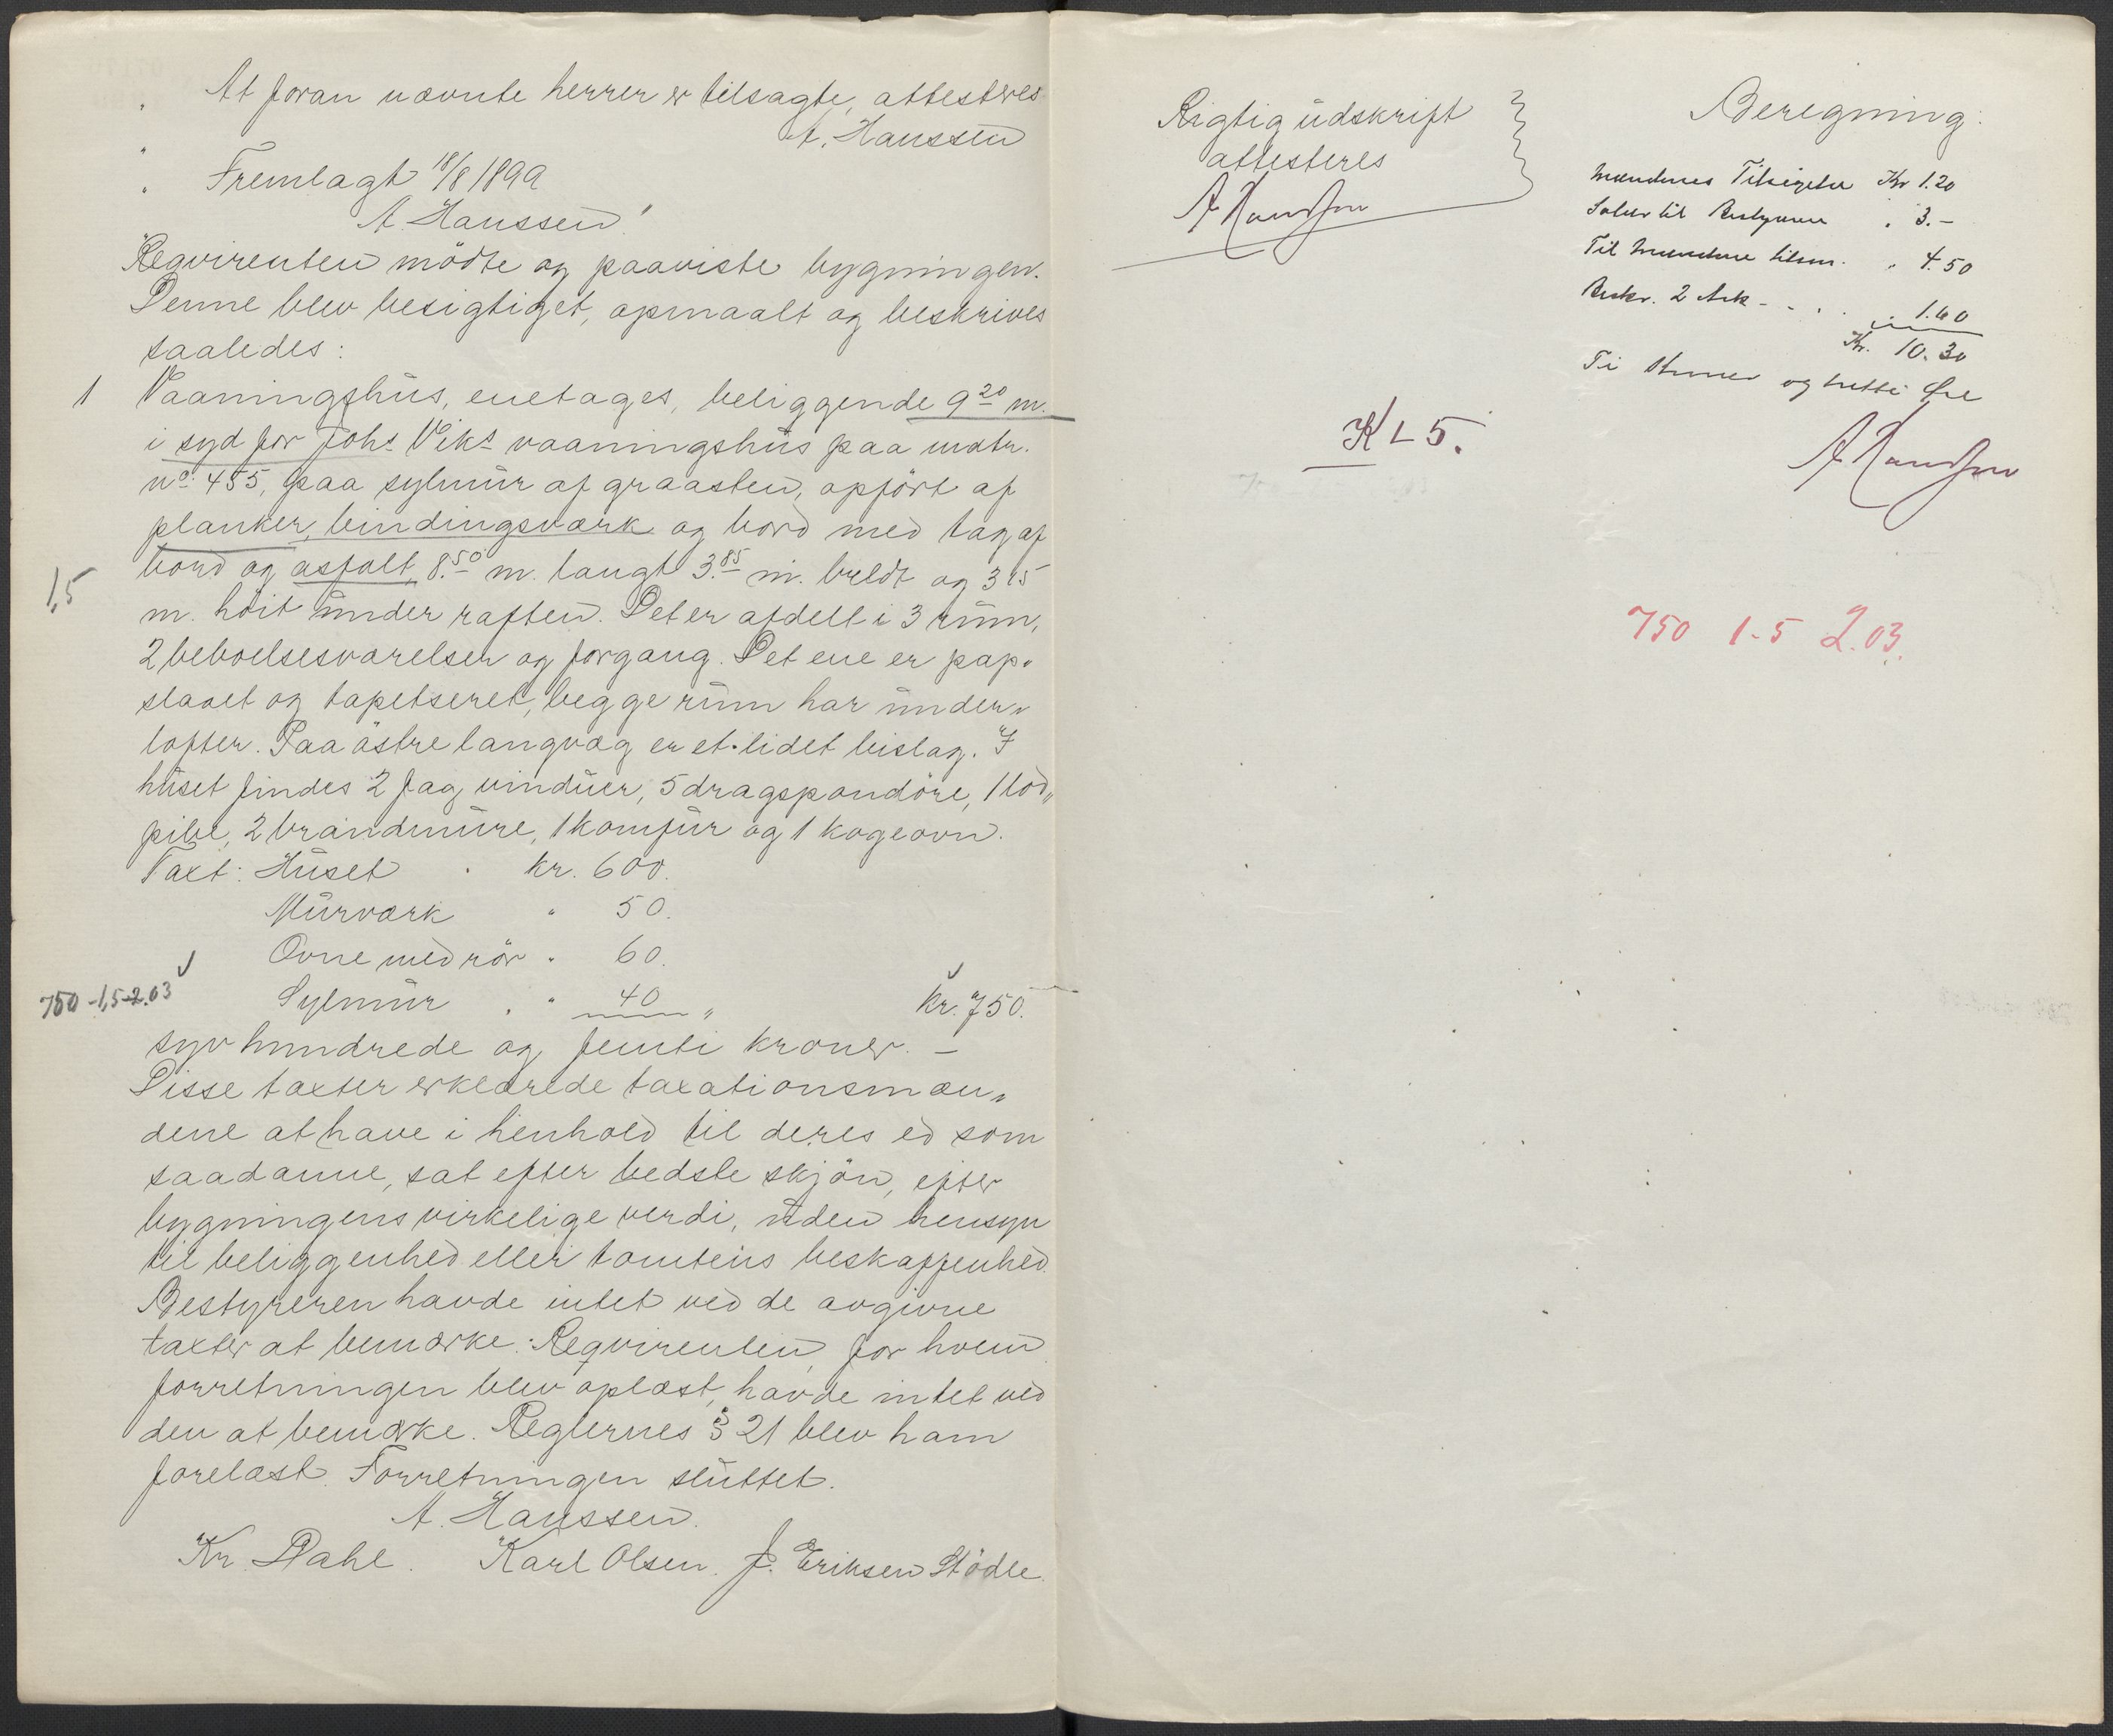 „ At foran nævnte herrer er tilsagte, attesteres
A. Hanssen
„ Fremlagt 18/8 1899
A. Hanssen.
Reqvirenten mödte og paaviste bygningen.
Denne blev besigtiget, opmaalt og beskrives
saaledes:
1 Vaaningshus, enetages, beliggende 9 20 m.
i syd for Johs Viks vaaningshus paa matr.
no: 455, paa sylmur af graasten, opfört af
planker, bindingsværk og bord med tag af
bord og asfalt, 8.50 m. langt 3.85 m. bredt og 3 15
1,5
m. höit under raften. Det er afdelt i 3 rum,
2 beboelsesværelser og forgang. Det ene er pap„
slaaet og tapetseret, begge rum har under„
lofter. Paa östre langvæg er et lidet bislag. I
huset findes 2 fag vinduer, 5 dragspondöre, 1 lod„
pibe, 2 brandmure, 1 komfur og 1 kogeovn.
Taxt: Huset . kr. 600.
Murværk " 50.
Ovne med rör " 60.
750-1,5-2.03
Sylmur . " 40 „ kr. 750.
syv hundrede og femti kroner. –
Disse taxter erklærede taxationsmæn„
dene at have i henhold til deres ed som
saadanne, sat efter bedste skjön, efter
bygningens virkelige verdi, uden hensyn
til beliggenhed eller tomtens beskaffenhed.
Bestyreren havde intet ved de avgivne
taxter at bemærke. Reqvirenten, for hvem
forretningen blev oplæst, havde intet ved
den at bemærke. Reglernes § 21 blev ham
forelæst. Forretningen sluttet.
A. Hanssen.
Kr. Dahl. Karl Olsen. J. Eriksen Stödle.
Rigtig udskrift
attesteres
A Hanssen
K L 5.
Beregning:
Mændenes Tilsigelse Kr 1.20
Salær til Bestyreren " 3.–
Til Mændene tilsm. " 4.50
Beskr. 2 Ark - - . . . 1.60
Kr. 10.30
Ti Kroner og tretti Øre
A Hanssen
750 1-5 2.03.